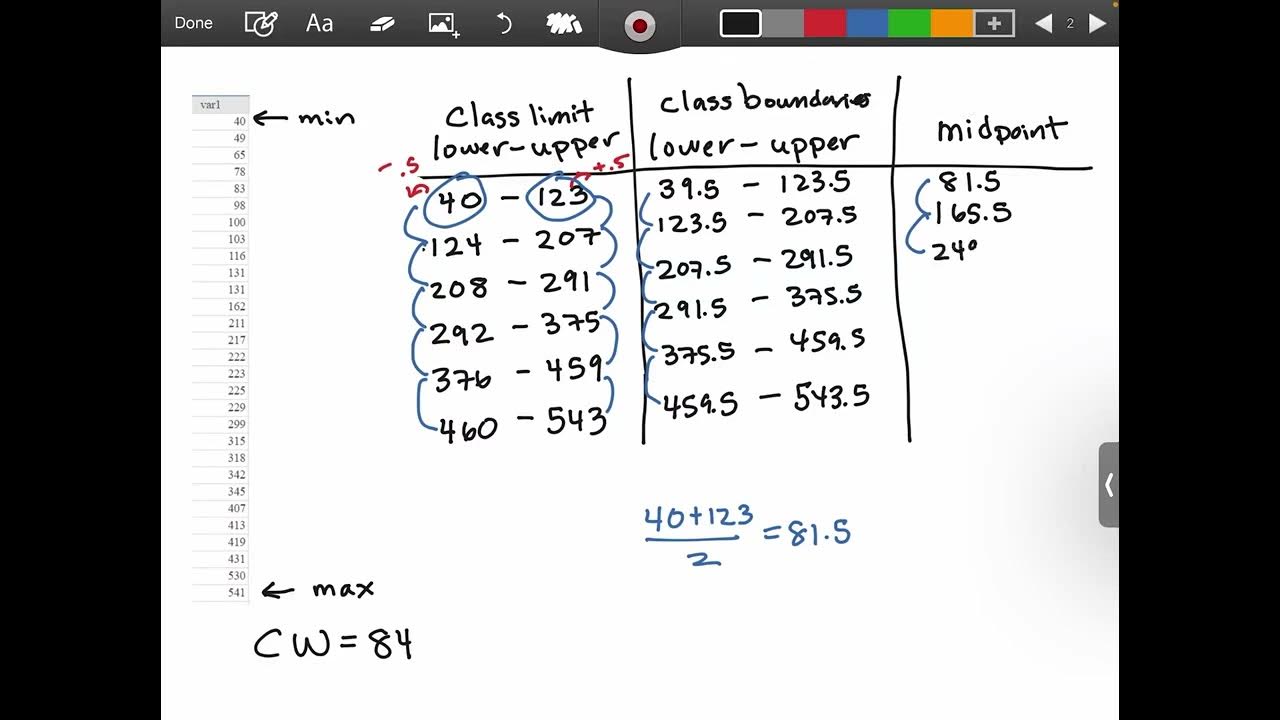 Done Aa 2
var1
40 ← min
49
65
78
83
98
100
103
116
131
131
162
211
217
222
223
225
229
299
315
318
342
345
407
413
419
431
530
541 ← max
CW = 84
Class limit
lower - upper
- .5 +.5
40 - 123
124 - 207
208 - 291
292 - 375
376 - 459
460 - 543
class boundaries
lower - upper
39.5 - 123.5
123.5 - 207.5
207.5 - 291.5
291.5 - 375.5
375.5 - 459.5
459.5 - 543.5
midpoint
81.5
165.5
24
40+123
2
= 81.5